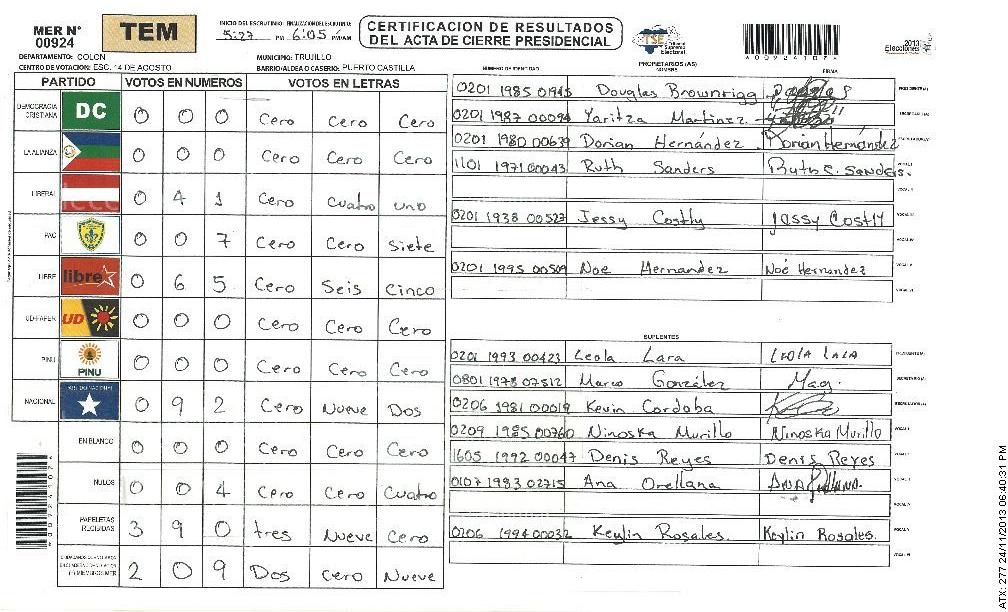 MER N° 00924
TEM
INICIO DEL ESCRUTINIO: FINALIZACION DEL ESCRUTINIO:
5:27 PM 6:05 PM/AM
CERTIFICACION DE RESULTADOS
DEL ACTA DE CIERRE PRESIDENCIAL
TSE Tribunal Supremo Electoral
2013 Elecciones
DEPARTAMENTO: COLON
MUNICIPIO: TRUJILLO
CENTRO DE VOTACION: ESC. 14 DE AGOSTO
BARRIO/ALDEA O CASERIO: PUERTO CASTILLA
PARTIDO VOTOS EN NUMEROS VOTOS EN LETRAS
DEMOCRACIA CRISTIANA DC 0 0 0 Cero Cero Cero
LA ALIANZA 0 0 0 Cero Cero Cero
LIBERAL 0 4 1 Cero Cuatro uno
PAC 0 0 7 Cero Cero Siete
LIBRE libre 0 6 5 Cero Seis Cinco
UD-FAPER UD 0 0 0 Cero Cero Cero
PINU PINU 0 0 0 Cero Cero Cero
NACIONAL 0 9 2 Cero Nueve Dos
EN BLANCO 0 0 0 Cero Cero Cero
NULOS 0 0 4 Cero Cero Cuatro
PAPELETAS RECIBIDAS 3 9 0 tres Nueve Cero
2 0 9 Dos Cero Nueve
PROPIETARIOS (AS)
NUMERO DE IDENTIDAD NOMBRE FIRMA
0201 1985 01945 Douglas Brownrigg
0201 1987 00094 Yaritza Martinez
0201 1980 00639 Dorian Hernández Dorian Hernández
1101 1971 00043 Ruth Sanders Ruth C. Sanders.
0201 1938 00527 Jessy Costly Jessy Costly
0201 1995 00509 Noe Hernandez Noé Hernandez
SUPLENTES
0201 1993 00423 Leola Lara Leola Lara
0801 1978 07512 Marco González Mag.
0206 1981 00019 Kevin Cordoba
0209 1985 00760 Ninoska Murillo Ninoska Murillo
1605 1992 00047 Denis Reyes Denis Reyes
0107 1983 02715 Ana Orellana
0206 1994 00032 Keylin Rosales. Keylin Rosales.
ATX: 277.24/11/2013 06:40:31 PM